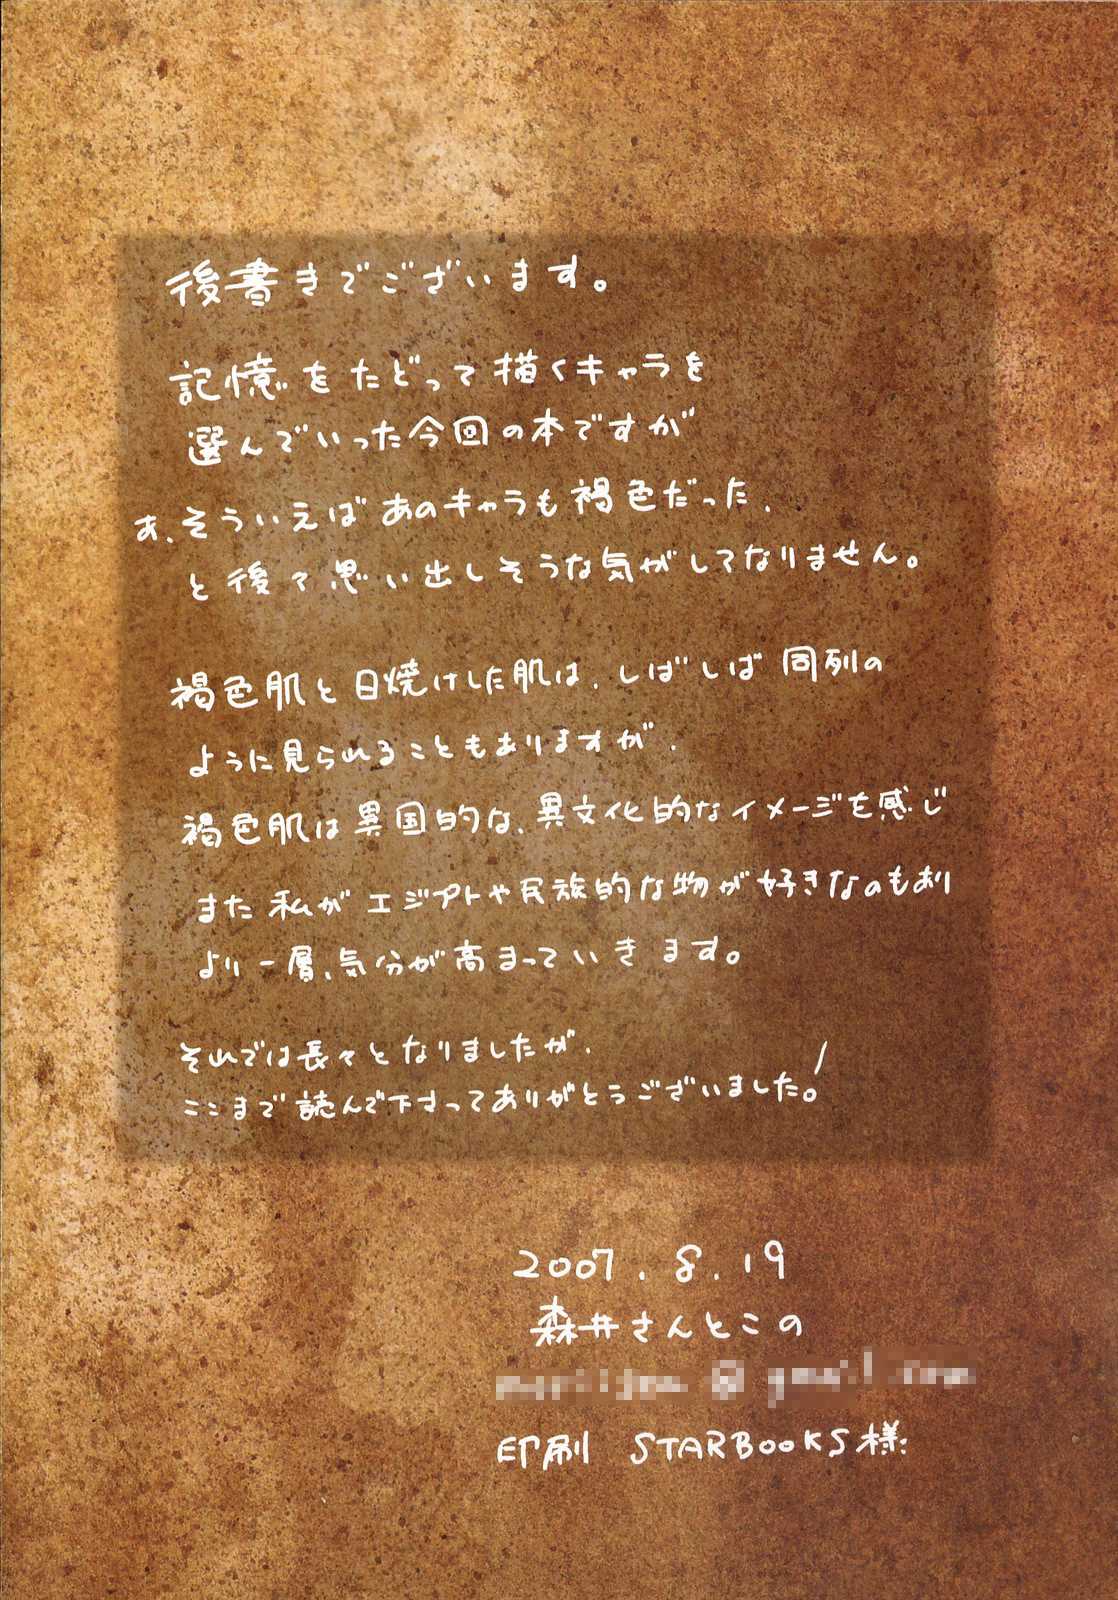 後書きでございます。
記憶をたどって描くキャラを
選んでいった今回の本ですが
あ、そういえばあのキャラも褐色だった、
と後々思い出しそうな気がしてなりません。
褐色肌と日焼けした肌は、しばしば同列の
ように見られることもありますが、
褐色肌は異国的な、異文化的なイメージを感じ
また私がエジプトや民族的な物が好きなのもあり
より一層、気分が高まっていきます。
それでは長々となりましたが、
ここまで読んで下すってありがとうございました!
2007.8.19
森井さんとこの
印刷 STARBOOKS様